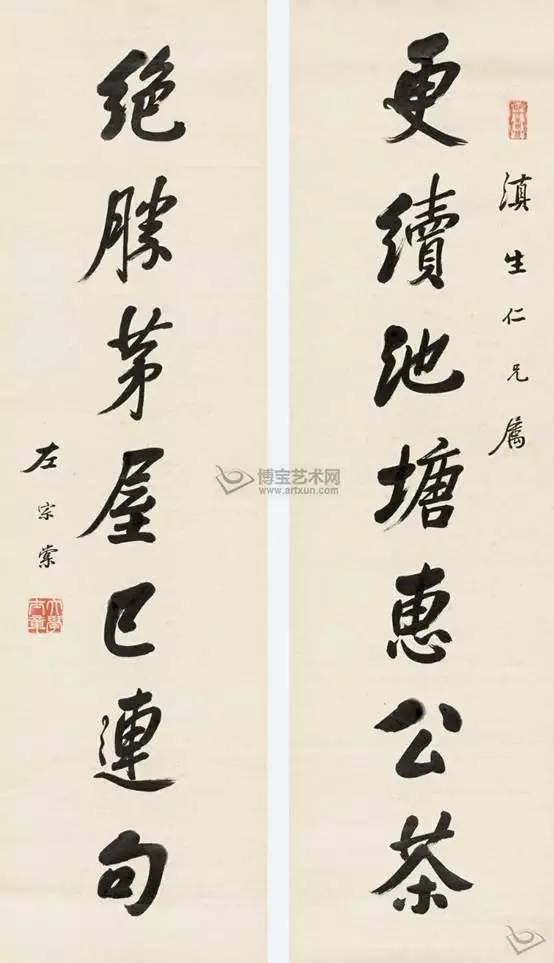 滇生仁兄屬
更續池塘惠公茶
絶勝茅屋已連句
左宗棠
博宝艺术网
www.artxun.com